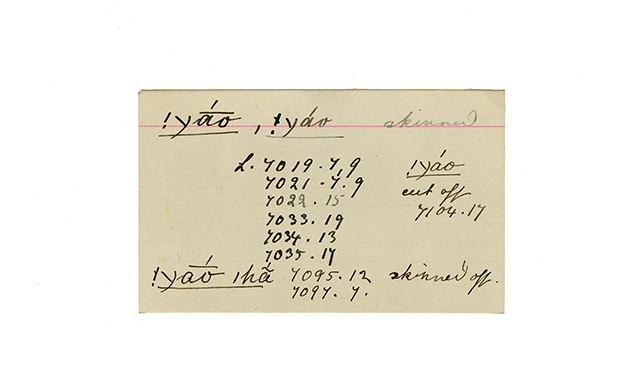 !γā́o, !γáo skinned
L. 7019.7,9
7021.7.9
7022.15
7033.19
7034.13
7035.17
!γáo
cut off
7104.17
!γā́ó ıhā̃ 7095.12 skinned off.
7097.7.